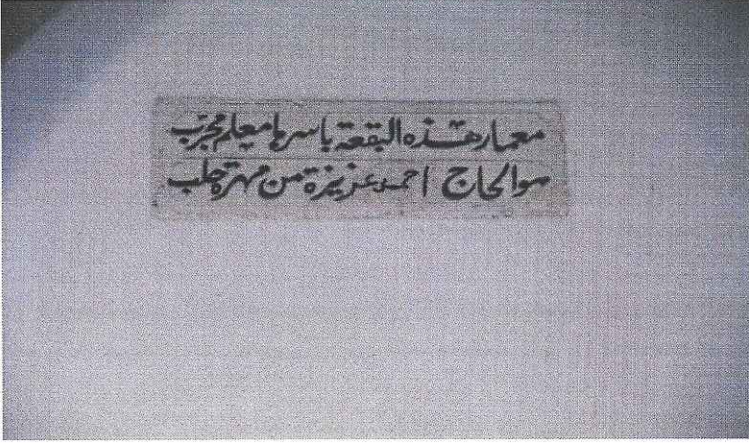 معمار هذه البقعة باسرها معلم مجرب
هو الحاج احمد عزيزة من مهرة حلب